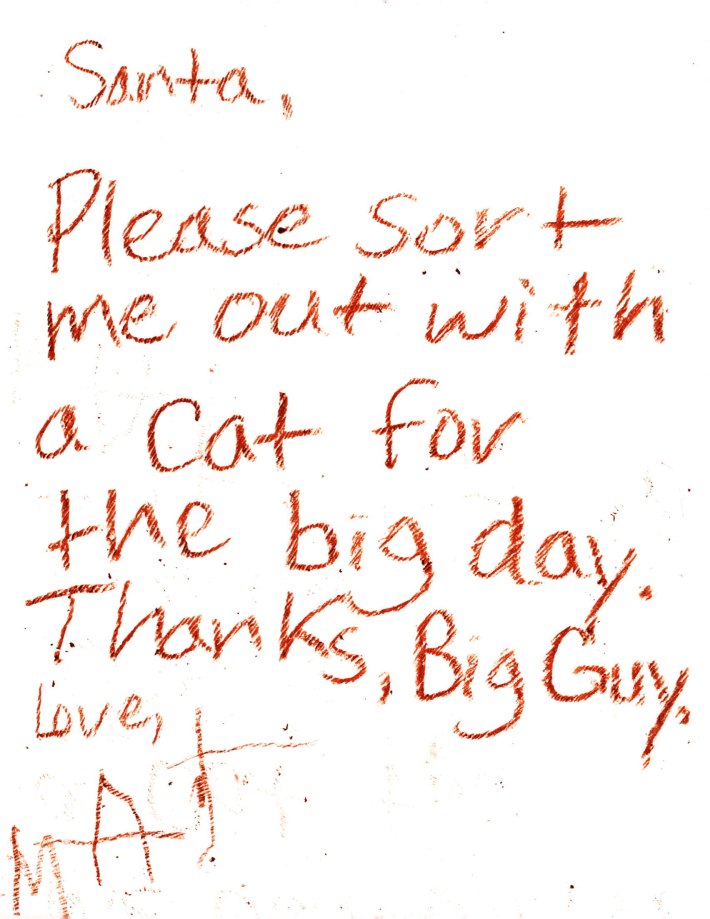 Santa,
Please sort
me out with
a cat for
the big day.
Thanks, Big Guy.
Love,
MAT